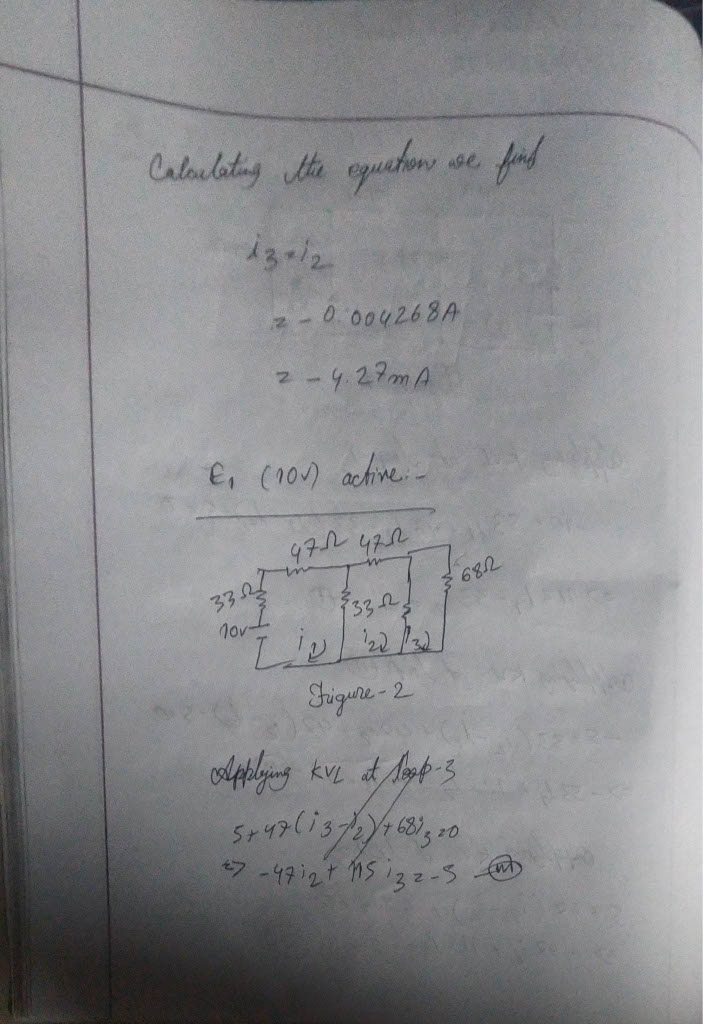 Calculating the equation we find
i3 = i2
= - 0.004268A
= - 4.27mA
E1 (10v) active:-
47Ω 47Ω
33Ω 33Ω 68Ω
10v
i1 i2 i3
Figure-2
Applying KVL at loop-3
5+47(i3-i2)+68i3=0
=> -47i2+115i3=-5